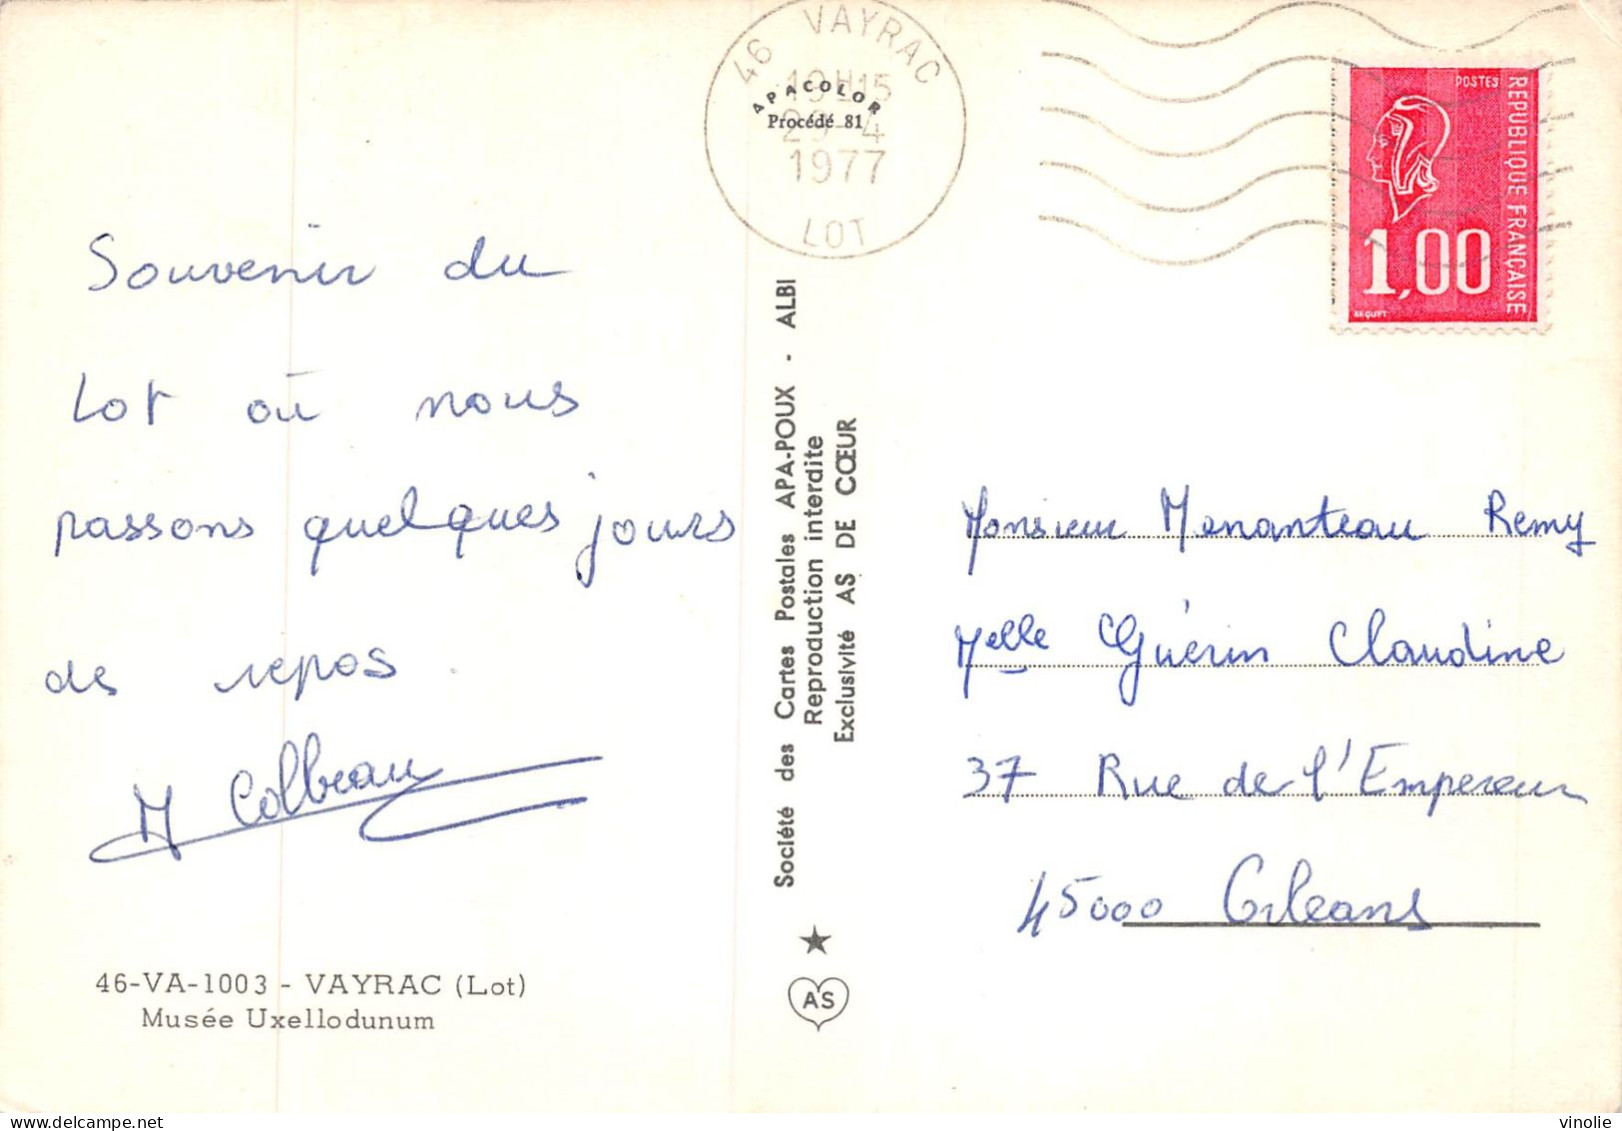 46 VAYRAC
19H15
APACOLOR
Procédé 81
1977
LOT
POSTES
REPUBLIQUE FRANÇAISE
1,00
BEQUET
Souvenir du
Lot où nous
passons quelques jours
de repos.
M Colbeau
46-VA-1003 - VAYRAC (Lot)
Musée Uxellodunum
Société des Cartes Postales APA-POUX - ALBI
Reproduction interdite
Exclusivité AS DE CŒUR
AS
Monsieur Menanteau Remy
Melle Guérin Claudine
37 Rue de l'Empereur
45000 Orleans
delcampe.net
vinolie